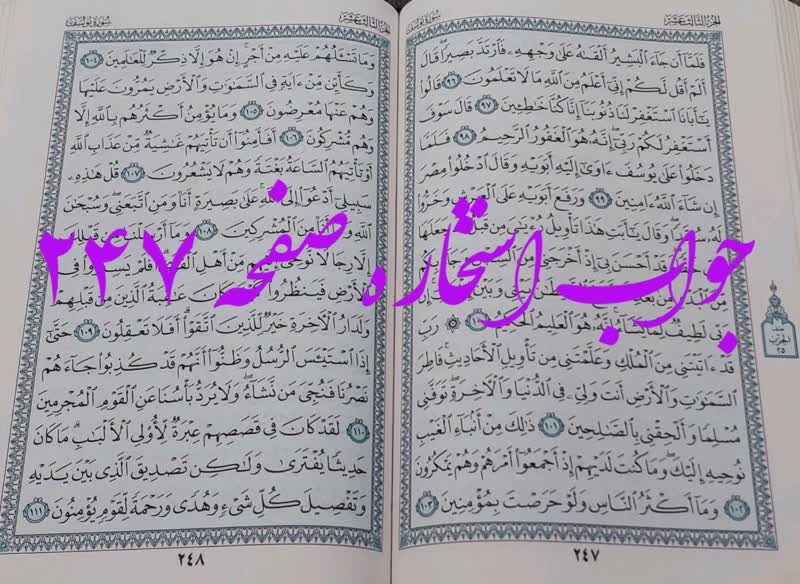 الجزء الثالث عشر
سورة يوسف
فَلَمَّا أَن جَاءَ الْبَشِيرُ أَلْقَىٰهُ عَلَىٰ وَجْهِهِ فَارْتَدَّ بَصِيرًا قَالَ
أَلَمْ أَقُل لَّكُمْ إِنِّي أَعْلَمُ مِنَ اللَّهِ مَا لَا تَعْلَمُونَ ٩٦ قَالُوا
يَٰأَبَانَا اسْتَغْفِرْ لَنَا ذُنُوبَنَا إِنَّا كُنَّا خَٰطِـِٔينَ ٩٧ قَالَ سَوْفَ
أَسْتَغْفِرُ لَكُمْ رَبِّي إِنَّهُ هُوَ الْغَفُورُ الرَّحِيمُ ٩٨ فَلَمَّا
دَخَلُوا عَلَىٰ يُوسُفَ ءَاوَىٰ إِلَيْهِ أَبَوَيْهِ وَقَالَ ادْخُلُوا مِصْرَ
إِن شَاءَ اللَّهُ ءَامِنِينَ ٩٩ وَرَفَعَ أَبَوَيْهِ عَلَى الْعَرْشِ وَخَرُّوا
لَهُ سُجَّدًا وَقَالَ يَٰأَبَتِ هَٰذَا تَأْوِيلُ رُءْيَٰيَ مِن قَبْلُ جَعَلَهَا
حَقًّا وَقَدْ أَحْسَنَ بِي إِذْ أَخْرَجَنِي مِنَ السِّجْنِ وَجَاءَ بِكُم
مِّنَ الْبَدْوِ مِن بَعْدِ الشَّيْطَٰنُ بَيْنِي وَبَيْنَ
رَبِّي لَطِيفٌ لِّمَا يَشَاءُ إِنَّهُ هُوَ الْعَلِيمُ الْحَكِيمُ ١٠٠ ۞ رَبِّ
قَدْ ءَاتَيْتَنِي مِنَ الْمُلْكِ وَعَلَّمْتَنِي مِن تَأْوِيلِ الْأَحَادِيثِ فَاطِرَ
السَّمَٰوَٰتِ وَالْأَرْضِ أَنتَ وَلِيِّۦ فِي الدُّنْيَا وَالْآخِرَةِ تَوَفَّنِي
مُسْلِمًا وَأَلْحِقْنِي بِالصَّٰلِحِينَ ١٠١ ذَٰلِكَ مِنْ أَنبَاءِ الْغَيْبِ
نُوحِيهِ إِلَيْكَ وَمَا كُنتَ لَدَيْهِمْ إِذْ أَجْمَعُوا أَمْرَهُمْ وَهُمْ يَمْكُرُونَ
١٠٢ وَمَا أَكْثَرُ النَّاسِ وَلَوْ حَرَصْتَ بِمُؤْمِنِينَ ١٠٣
٢٤٧
الجزء الثالث عشر
سورة يوسف
وَمَا تَسْـَٔلُهُمْ عَلَيْهِ مِنْ أَجْرٍ إِنْ هُوَ إِلَّا ذِكْرٌ لِّلْعَٰلَمِينَ ١٠٤
وَكَأَيِّن مِّنْ ءَايَةٍ فِي السَّمَٰوَٰتِ وَالْأَرْضِ يَمُرُّونَ عَلَيْهَا
وَهُمْ عَنْهَا مُعْرِضُونَ ١٠٥ وَمَا يُؤْمِنُ أَكْثَرُهُم بِاللَّهِ إِلَّا
وَهُم مُّشْرِكُونَ ١٠٦ أَفَأَمِنُوا أَن تَأْتِيَهُمْ غَٰشِيَةٌ مِّنْ عَذَابِ اللَّهِ
أَوْ تَأْتِيَهُمُ السَّاعَةُ بَغْتَةً وَهُمْ لَا يَشْعُرُونَ ١٠٧ قُلْ هَٰذِهِ
سَبِيلِي أَدْعُوا إِلَى اللَّهِ عَلَىٰ بَصِيرَةٍ أَنَا وَمَنِ اتَّبَعَنِي وَسُبْحَٰنَ
اللَّهِ وَمَا أَنَا مِنَ الْمُشْرِكِينَ ١٠٨ وَمَا أَرْسَلْنَا مِن قَبْلِكَ
إِلَّا رِجَالًا نُّوحِي إِلَيْهِم مِّنْ أَهْلِ الْقُرَىٰ أَفَلَمْ يَسِيرُوا فِي
الْأَرْضِ فَيَنظُرُوا كَيْفَ كَانَ عَٰقِبَةُ الَّذِينَ مِن قَبْلِهِمْ
وَلَدَارُ الْآخِرَةِ خَيْرٌ لِّلَّذِينَ اتَّقَوْا أَفَلَا تَعْقِلُونَ ١٠٩ حَتَّىٰ
إِذَا اسْتَيْـَٔسَ الرُّسُلُ وَظَنُّوا أَنَّهُمْ قَدْ كُذِبُوا جَاءَهُمْ
نَصْرُنَا فَنُجِّيَ مَن نَّشَاءُ وَلَا يُرَدُّ بَأْسُنَا عَنِ الْقَوْمِ الْمُجْرِمِينَ
١١٠ لَقَدْ كَانَ فِي قَصَصِهِمْ عِبْرَةٌ لِّأُولِي الْأَلْبَٰبِ مَا كَانَ
حَدِيثًا يُفْتَرَىٰ وَلَٰكِن تَصْدِيقَ الَّذِي بَيْنَ يَدَيْهِ
وَتَفْصِيلَ كُلِّ شَيْءٍ وَهُدًى وَرَحْمَةً لِّقَوْمٍ يُؤْمِنُونَ ١١١
٢٤٨
جواب استخاره صفحه ۲۴۷
نصف
الحزب
٢٥